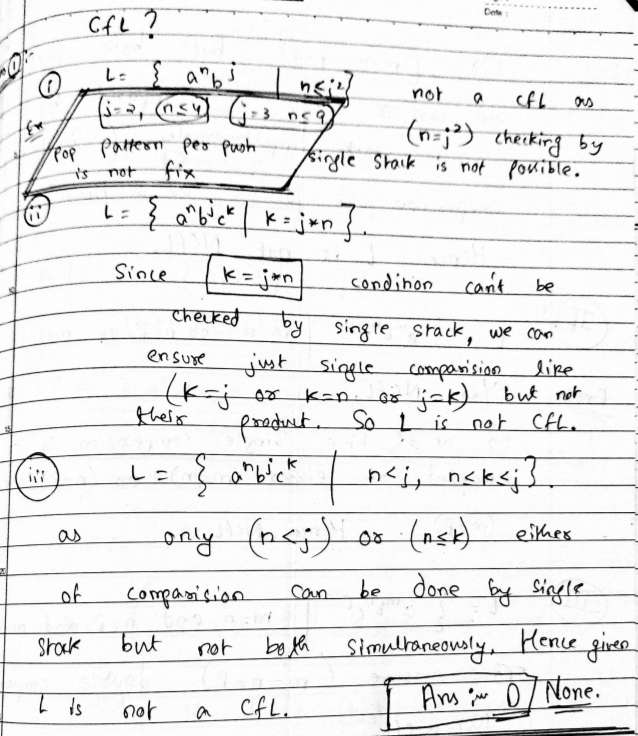 Date :
CfL ?
①:-
(i) L = { aⁿbʲ | n≤j²}
not a CfL as
Ex j=2, n≤4 j=3 n≤9
(n=j²) checking by
pop pattern per push
single stack is not possible.
is not fix
(ii) L = { aⁿbʲcᵏ | K = j*n }.
Since K = j*n condition can't be
checked by single stack, we can
ensure just single comparision like
(K=j or K=n or j=K) but not
their product. So L is not CfL.
(iii) L = { aⁿbʲcᵏ | n<j, n≤k≤j}.
as only (n<j) or (n≤k) either
of comparision can be done by single
stack but not both simultaneously. Hence given
L is not a CfL.
Ans :- D None.